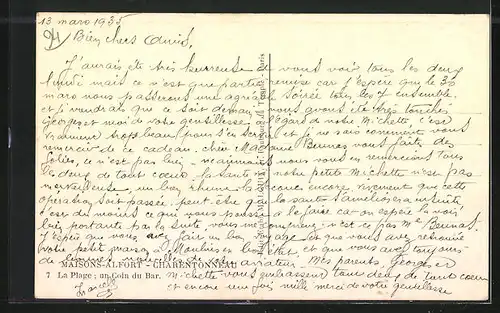 13 mars 1935
Bien chers Amis,
J'aurais été très heureuse de vous voir tous les deux
lundi mais ce n'est que partie remise car j'espère que le 30
mars nous passerons une agréable soirée tous les 7 ensemble
et je voudrais que ce soit demain nous avons été très touchés
Georges et moi de votre gentillesse à l'égard de notre Michette, c'est
vraiment trop beau pour s'en servir et je ne sais comment vous
remercier de ce cadeau, chère Madame Beunas vous faites des
folies, ce n'est pas bien, néanmoins nous vous en remercions tous
les deux de tout coeur, la santé de notre petite Michette n'est pas
merveilleuse, un bon rhume la encore, vivement que cette
opération soit passée, peut être que la santé s'améliorera ensuite
c'est du moins ce que nous pensons à le faire car on espère la voir
bien portante par la suite vous me c'est pas Mr Beunas.
J'espère que vous avez fait un bon voyage et que vous avez retrouvé
votre petit maison St Maulvis en bon état, et que vous avez toujours
de Mes parents Georges et
MAISONS-ALFORT - CHARENTONNEAU
7 La Plage ; un Coin du Bar.
Michette vous embrassent tous deux de tout coeur
et encore une fois mille merci de votre gentillesse